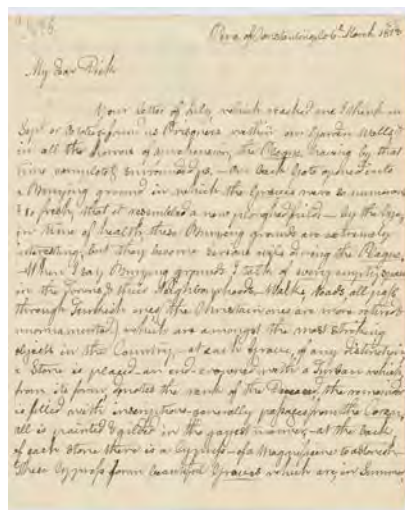 Pera of Constantinople 6th March 1813
My Dear Dick
Your letter of July, which reached me I think in
Sept or October found us Prisoners within our Garden Walls
in all the horrors of apprehension, the Plague having by that
time completely surrounded us, – Our back Gate opened into
a Burying ground in which the Graves were so numerous
& so fresh, that it resembled a new ploughed field – by the bye,
in time of health these Burying grounds are extremely
interesting, but they become serious evils during the Plague,
– When I say Burying grounds I talk of every empty space
in the Towns & their Neighbourhoods – Walks, Roads, all pass
through Turkish ones (the Christian ones are more retired &
unornamented) which are amongst the most striking
objects in the Country, – at each Grave, of any distinction
a Stone is placed – an end crowned with a Turban which
from its form denotes the rank of the Deceased, the remainder
is filled with inscriptions generally passages from the Coran,
all is painted & gilded in the gayest manner, – at the back
of each Stone there is a Cypress – of a Magnificence to astonish
These Cypress form beautiful Groves which are, in Summer,